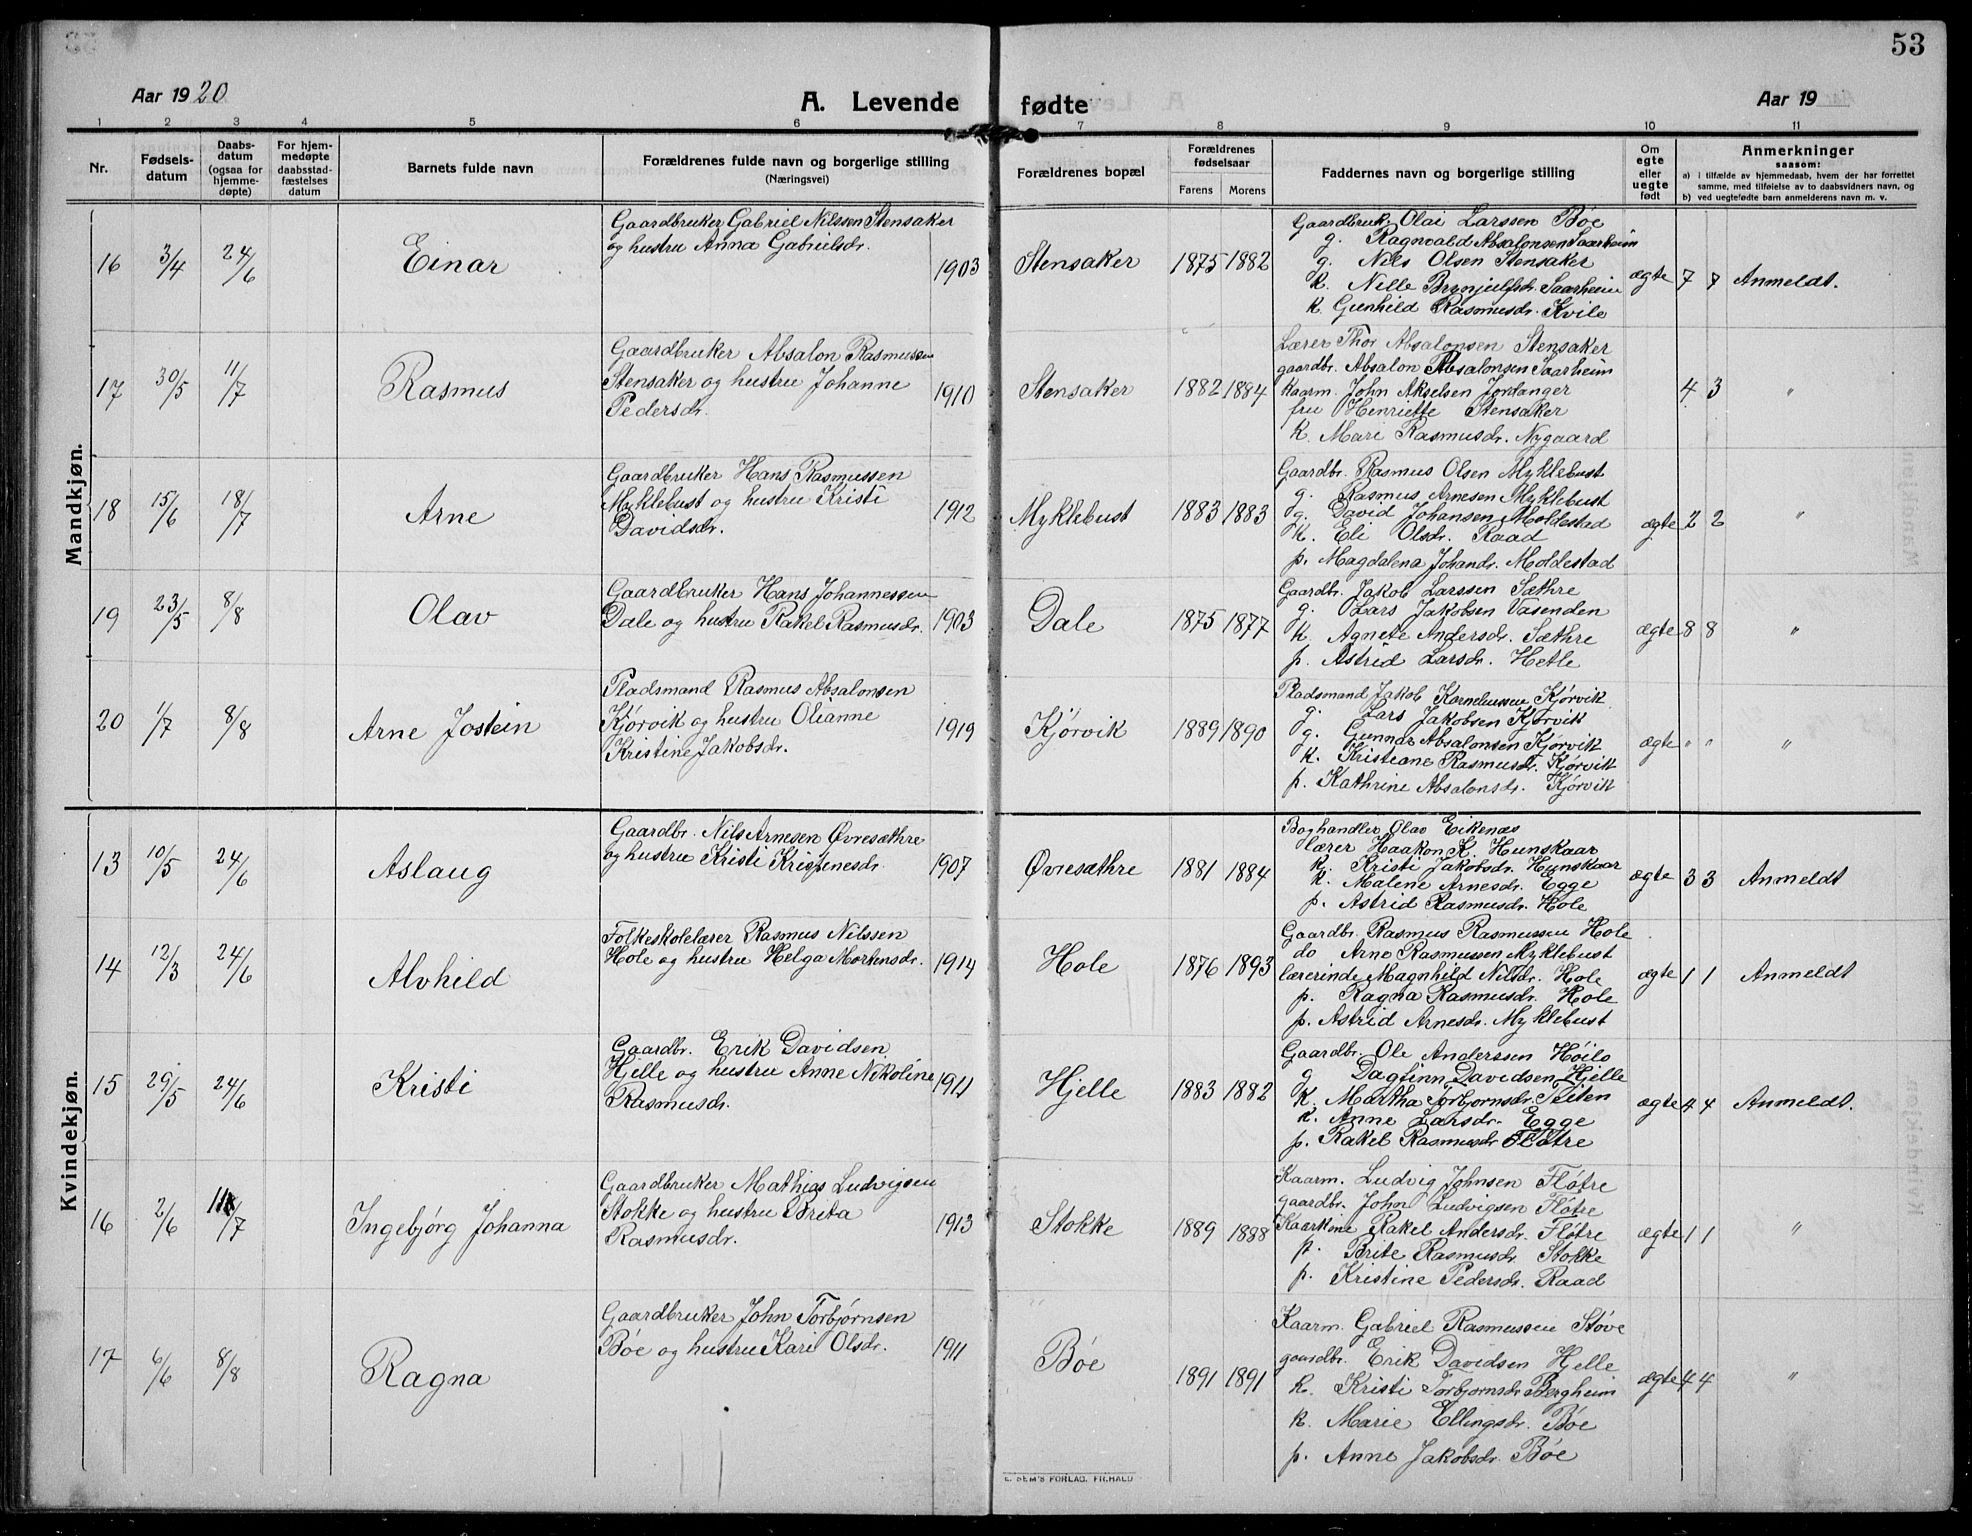 53
Aar 1920
A. Levende fødte
Aar 19
1 2 3 4 5 6 7 8 9 10 11
Nr.
Fødsels-
datum
Daabs-
datum
(ogsaa for
hjemme-
døpte)
For hjem-
medøpte
daabsstad-
fæstelses
datum
Barnets fulde navn
Forældrenes fulde navn og borgerlige stilling
(Næringsvei)
Forældrenes bopæl
Forældrenes
fødselsaar
Farens Morens
Faddernes navn og borgerlige stilling
Om
egte
eller
uegte
født
Anmerkninger
saasom:
a) i tilfælde av hjemmedaab, hvem der har forrettet
samme, med tilføielse av to daabsvidners navn, og
b) ved uegtefødte barn anmelderens navn m. v.
Mandkjøn.
16 3/4 24/6 Einar
Gaardbruker Gabriel Nilssen Stensaker
og hustru Anna Gabrielsdr.
1903 Stensaker 1875 1882
Gaardbruk. Olai Larssen Bøe
g. Ragnvald Absalonsen Saarheim
g. Nils Olsen Stensaker
k. Nille Brynjulfsdr. Saarheim
k. Gunhild Rasmusdr. Kvile
ægte 7 7 Anmeldt.
17 30/5 11/7 Rasmus
Gaardbruker Absalon Rasmussen
Stensaker og hustru Johanne
Pedersdr.
1910 Stensaker 1882 1884
Lærer Thor Absalonsen Stensaker
gaardbr. Absalon Absalonsen Saarheim
kaarm. John Akselsen Jordanger
fru Henriette Stensaker
k. Mari Rasmusdr. Nygaard
4 3 "
18 15/6 18/7 Arne
Gaardbruker Hans Rasmussen
Myklebust og hustru Kristi
Davidsdr.
1912 Myklebust 1883 1883
Gaardbr. Rasmus Olsen Myklebust
g. Rasmus Arnesen Myklebust
g. David Johansen Moldestad
k. Eli Olsdr. Raad
p. Magdalena Johandr. Moldestad
ægte 2 2 "
19 23/5 8/8 Olav
Gaardbruker Hans Johannessen
Dale og hustru Rakel Rasmusdr.
1903 Dale 1875 1877
Gaardbr. Jakob Larssen Sæthre
g. Lars Jakobsen Vasenden
k. Agnete Andersdr. Sæthre
p. Astrid Larsdr. Hetle
ægte 8 8 "
20 1/7 8/8 Arne Jostein
Pladsmand Rasmus Absalonsen
Kjørvik og hustru Olianne
Kristine Jakobsdr.
1919 Kjørvik 1889 1890
Pladsmand Jakob Korneliussen Kjørvik
g. Lars Jakobsen Kjørvik
g. Gunnar Absalonsen Kjørvik
k. Kristiane Rasmusdr. Kjørvik
p. Kathrine Absalonsdr. Kjørvik
ægte " " "
Kvindekjøn.
13 10/5 24/6 Aslaug
Gaardbr. Nils Arnesen Øvresæthre
og hustru Kristi Krispinesdr.
1907 Øvresæthre 1881 1884
Boghandler Olav Eikenæs
lærer Haakon K. Hunskaar
k. Kristi Jakobsdr. Hunskaar
k. Malene Arnesdr. Egge
p. Astrid Rasmusdr. Hole
ægte 3 3 Anmeldt
14 12/3 24/6 Alvhild
Folkeskolelærer Rasmus Nilssen
Hole og hustru Helga Mortensdr.
1914 Hole 1876 1893
Gaardbr. Rasmus Rasmussen Hole
do Arne Rasmussen Myklebust
lærerinde Magnhild Nilsdr. Hole
p. Ragna Rasmusdr. Hole
p. Astrid Arnesdr. Myklebust
ægte 1 1 Anmeldt
15 29/5 24/6 Kristi
Gaardbr. Erik Davidsen
Hjelle og hustru Anne Nikoline
Rasmusdr.
1911 Hjelle 1883 1882
Gaardbr. Ole Anderssen Høilo
g Dagfinn Davidsen Hjelle
k. Martha Torbjørnsdr. Teiten
k. Anne Larsdr. Egge
p. Rakel Rasmusdr. Fløtre
ægte 4 4 Anmeldt.
16 2/6 11/7 Ingebjørg Johanna
Gaardbruker Mathias Ludvigsen
Stokke og hustru Brita
Rasmusdr.
1913 Stokke 1889 1888
Kaarm. Ludvig Johnsen Fløtre
gaardbr. John Ludvigsen Fløtre
Kaarkone Rakel Andersdr. Fløtre
p. Brite Rasmusdr. Stokke
p. Kristine Pedersdr. Raad
ægte 1 1 "
17 6/6 8/8 Ragna
Gaardbruker John Torbjørnsen
Bøe og hustru Kari Olsdr.
1911 Bøe 1891 1891
Kaarm. Gabriel Rasmussen Støve
gaardbr. Erik Davidsen Hjelle
k. Kristi Torbjørnsdr. Bergheim
k. Marie Ellingsdr. Bøe
p. Anne Jakobsdr. Bøe
ægte 4 4 "
E. SEM'S FORLAG, FR.HALD